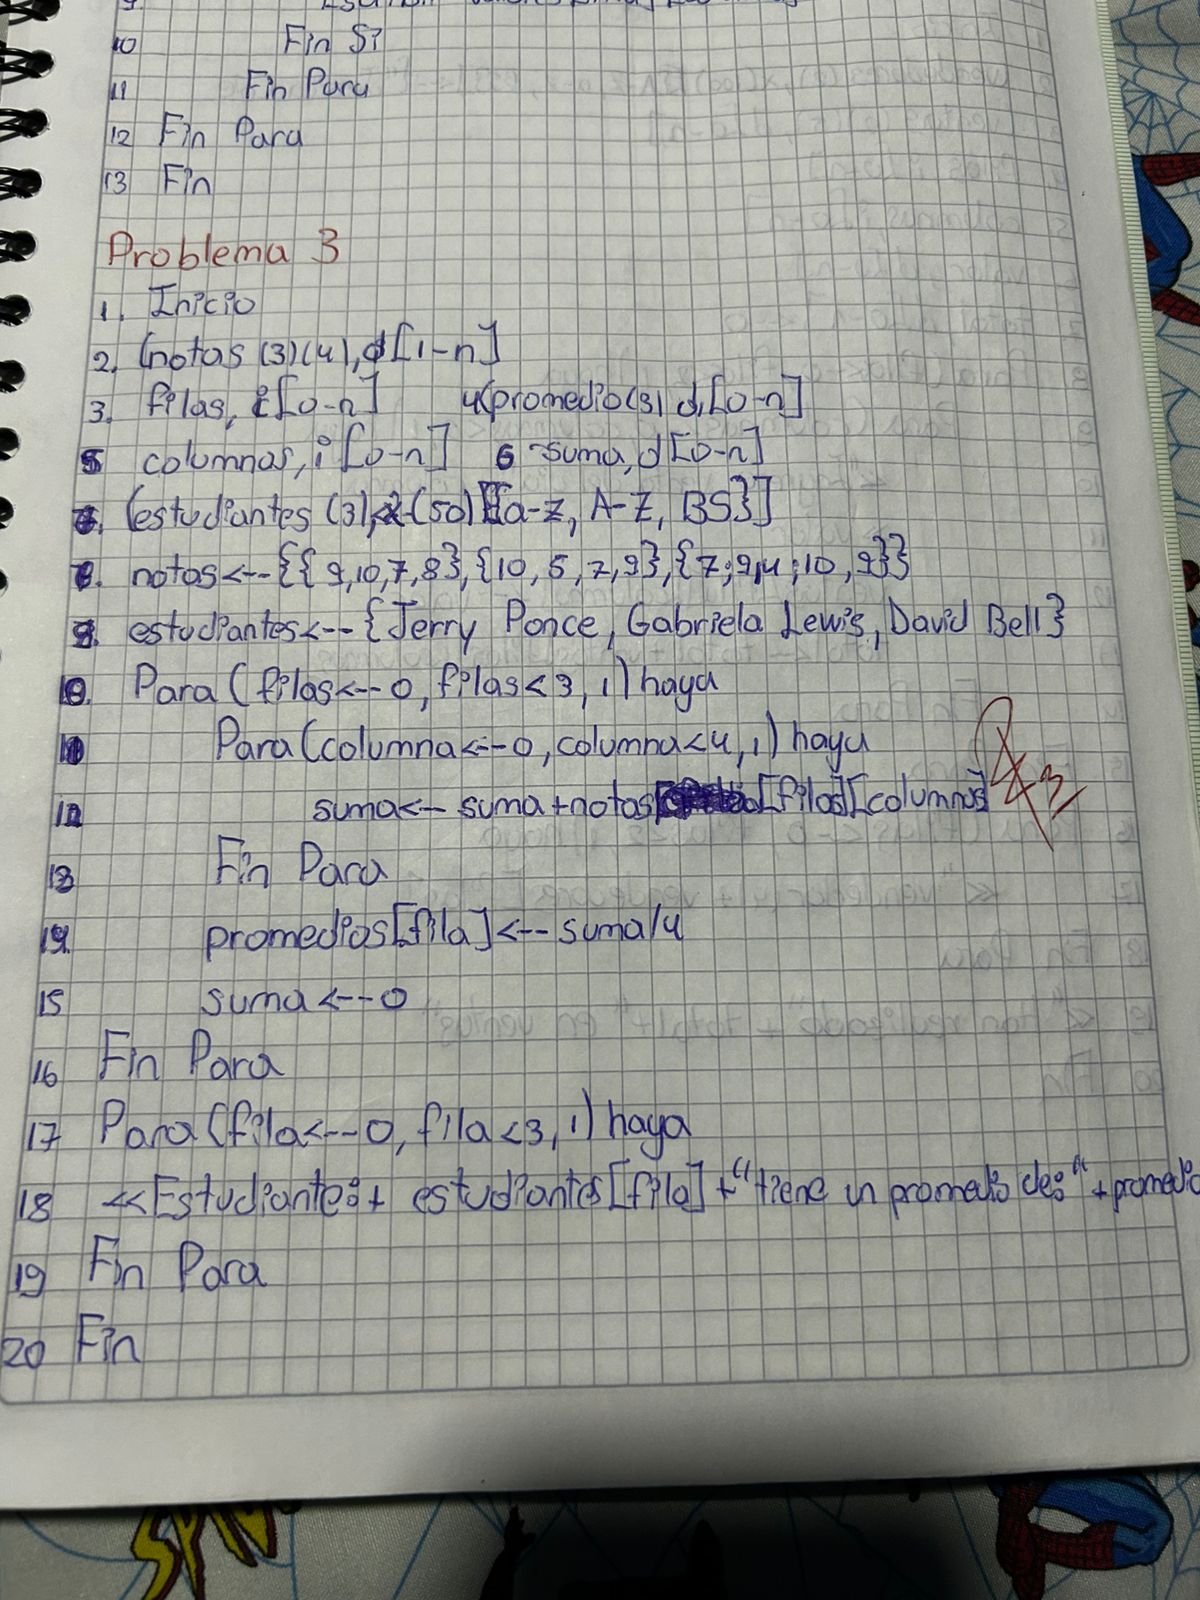 10 Fin Si
11 Fin Para
12 Fin Para
13 Fin
Problema 3
1. Inicio
2. (notas (3)(4), d [1-n]
3. filas, i [0-n] 4(promedio(3) d, [0-n]
5 columnas, i [0-n] 6 suma, d [0-n]
(estudiantes (3), (50) [{a-z, A-Z, BS}]
8. notas <-- {{ 9,10,7,8}, {10, 5, 7, 9}, {7; 9,4; 10, 9}}
9. estudiantes <-- {Jerry Ponce, Gabriela Lewis, David Bell}
10. Para (filas <-- 0, filas < 3, 1) haga
Para (columna <-- 0, columna < 4, 1) haga
12 suma <-- suma + notas [filas][columnas]
13 Fin Para
14. promedios [fila] <-- suma/4
15 suma <-- 0
16 Fin Para
17 Para (fila <-- 0, fila < 3, 1) haga
18 << Estudiante: + estudiantes [fila] + "tiene un promedio de: " + promedio
19 Fin Para
20 Fin